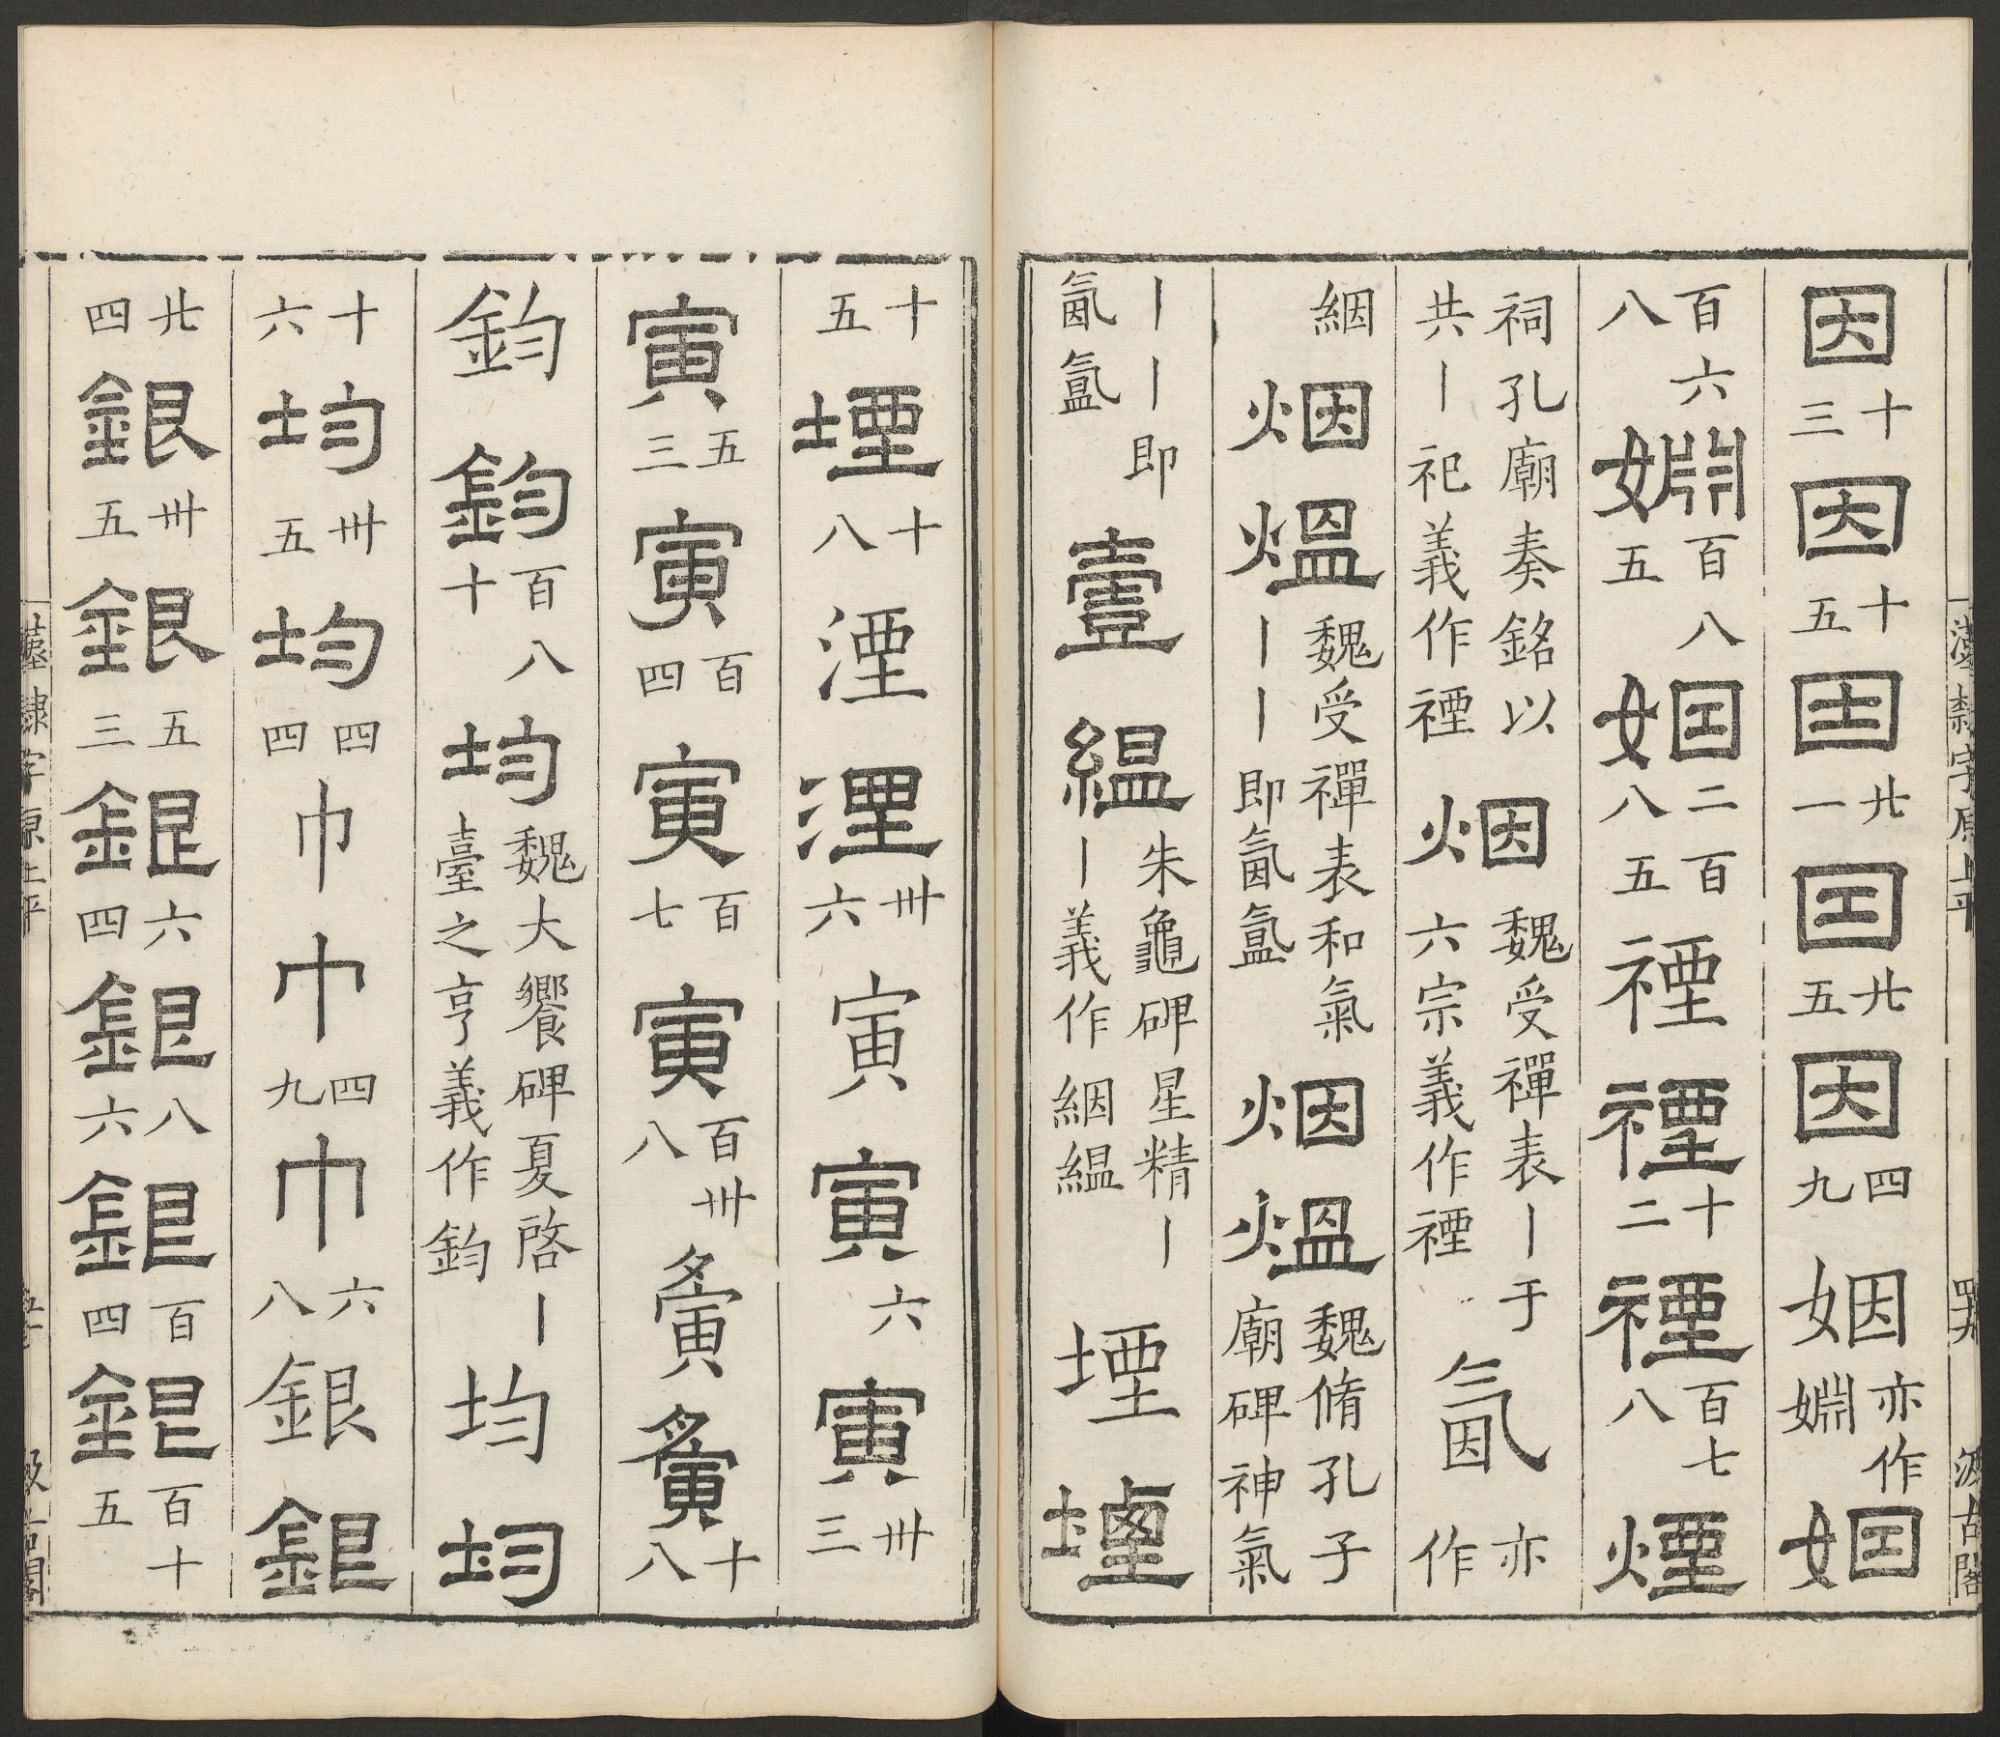 因十三因十五因廿一因廿五因四九姻亦作婣姻
百六八婣百八五姻二百八五禋禋十二禋百七八煙
祠孔廟奏銘以共丨祀義作禋烟魏受禪表丨于六宗義作禋氤亦作
絪烟熅魏受禪表和氣丨丨即氤氳烟熅魏脩孔子廟碑神氣
丨丨即氤氳壹縕朱龜碑星精丨丨義作絪縕堙堙
十五堙十八湮湮卅六寅寅六寅卅三
寅五三寅百四寅百七寅百卅八夤夤十八
鈞鈞百八十均魏大饗碑夏啓丨臺之亨義作鈞均均
十六均卅五均四四巾巾四九巾六八銀銀
廿四銀卅五銀五三銀六四銀八六銀百四銀百十五
漢隸字原上平
汲古閣